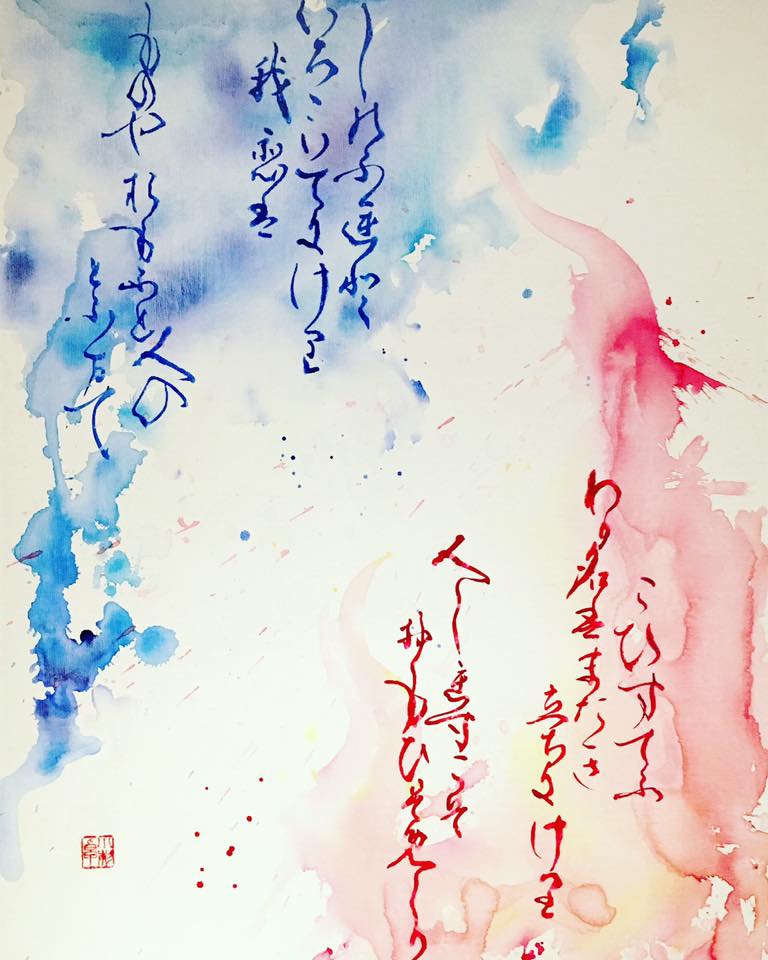 しのふ連と
いろにいてにけり
我恋は
ものや於もふと人の
とふ万て
こひすてふ
わか名はまたき
立ちにけり
人し連すこそ
おもひそめしか